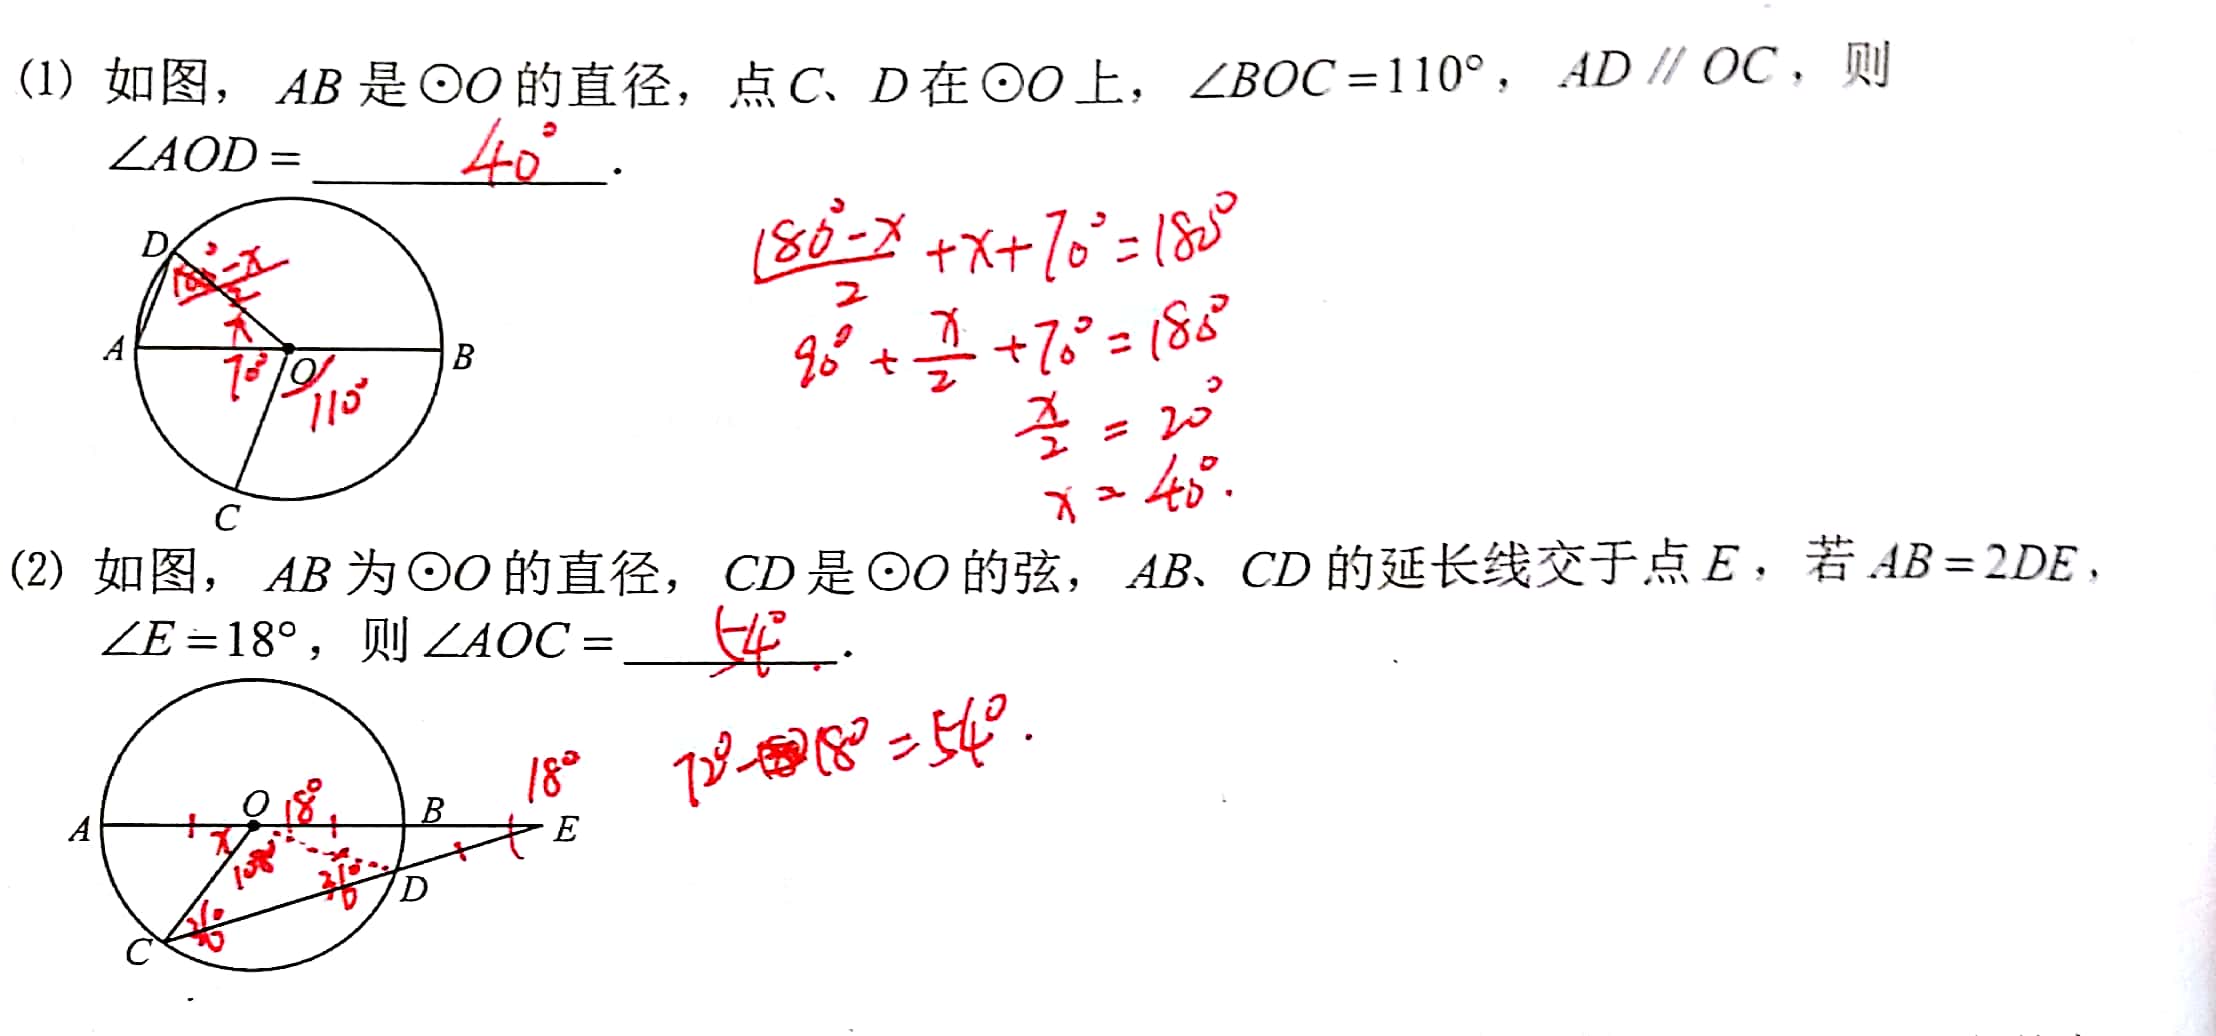 (1) 如图， AB 是⊙O 的直径，点 C、D 在⊙O 上，∠BOC=110°，AD // OC，则
∠AOD= 40° .
D
180°-x
2
x
A
70°
O
110°
B
C
(180°-x)/2 + x + 70° = 180°
90° + x/2 + 70° = 180°
x/2 = 20°
x = 40°.
(2) 如图， AB 为⊙O 的直径， CD 是⊙O 的弦， AB、CD 的延长线交于点 E，若 AB=2DE，
∠E=18°，则∠AOC= 54° .
72°-18°=54°.
18°
O
18°
B
A
x
E
108°
36°
D
36°
C